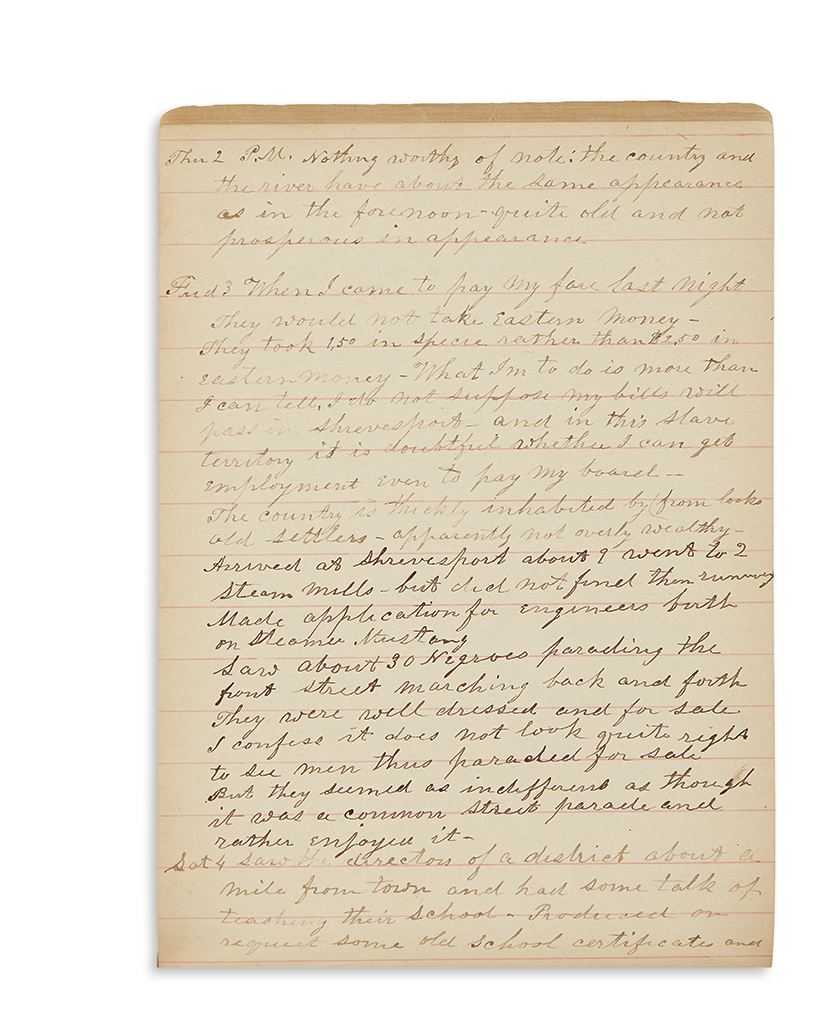 Thu 2 P.M. Nothing worthy of note: the country and
the river have about the same appearance
as in the forenoon - quite old and not
prosperous in appearance.
Frid 3 When I came to pay my fare last night
They would not take Eastern Money -
They took 1,50 in specie rather than $2,50 in
Eastern money - What I'm to do is more than
I can tell, I do not suppose my bills will
pass in Shrevesport - and in this slave
territory it is doubtful whether I can get
employment even to pay my board -
The country is thickly inhabited by (from looks
old settlers - apparently not overly wealthy -
Arrived at Shrevesport about 9 went to 2
Steam Mills - but did not find them running
Made application for Engineers birth
on Steamer Mustang
Saw about 30 Negroes parading the
front street marching back and forth
They were well dressed and for sale
I confess it does not look quite right
to see men thus paraded for sale
But they seemed as indifferent as though
it was a common street parade and
rather enjoyed it -
Sat 4 Saw the directors of a district about a
mile from town and had some talk of
teaching their school - Produced on
request some old school certificates and